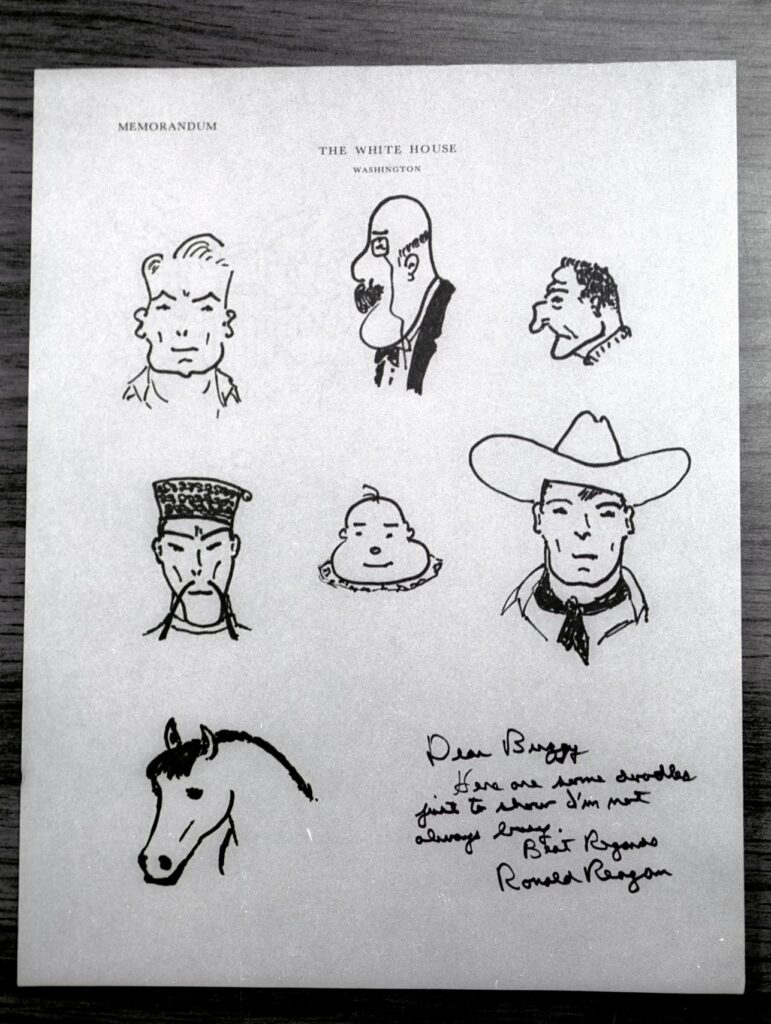 MEMORANDUM
THE WHITE HOUSE
WASHINGTON
Dear Buggy
Here are some doodles
just to show I'm not
always busy.
Best Regards
Ronald Reagan